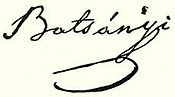 Batsányi